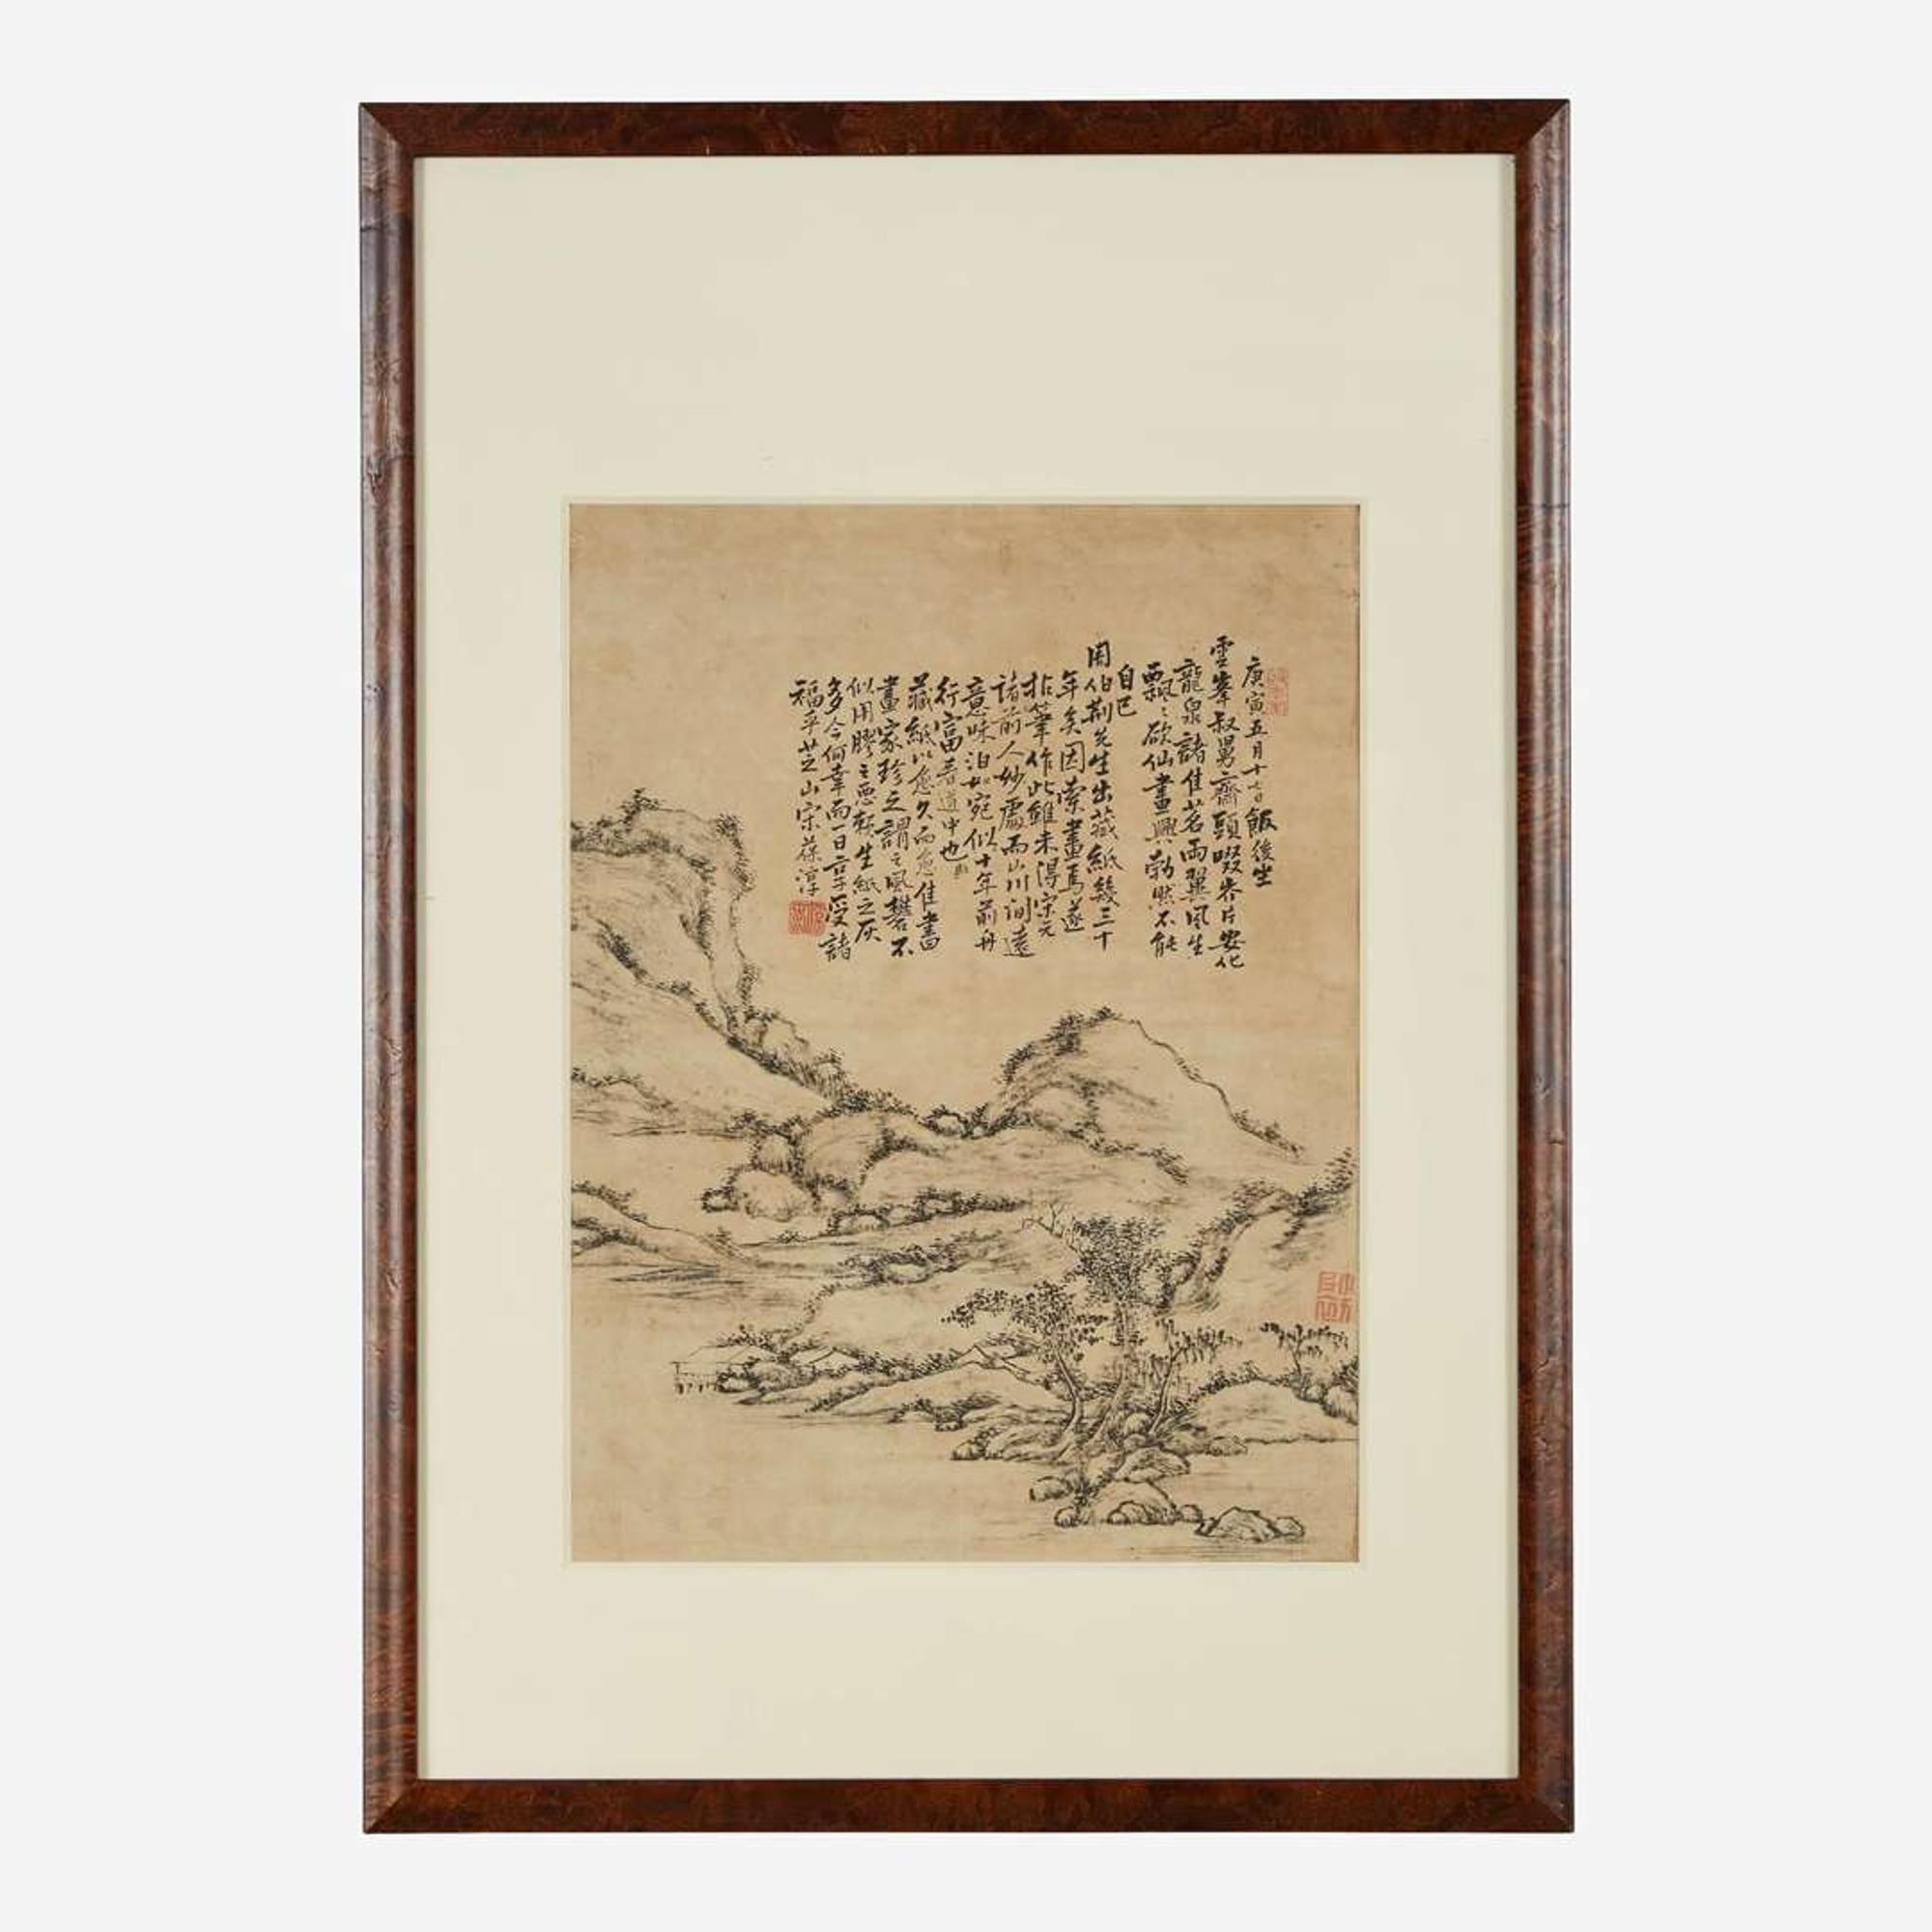 庚寅五月十七日飯後坐
雲峯叔舅齋頭啜岕片安化
龍泉諸佳茗兩翼風生
飄〻欲仙畫興勃然不能
自已
用伯荆先生出藏紙幾三十
年矣因索畫焉遂
拈筆作此雖未得宋元
諸前人妙處而山川洵遠
意味泊如宛似十年前舟
行富春道中也
藏紙以愈久而愈佳書
畫家珍之謂之風礬不
似用膠之悪熟生紙之灰
多今何幸而一日言子受諸
福乎芝山宋葆淳